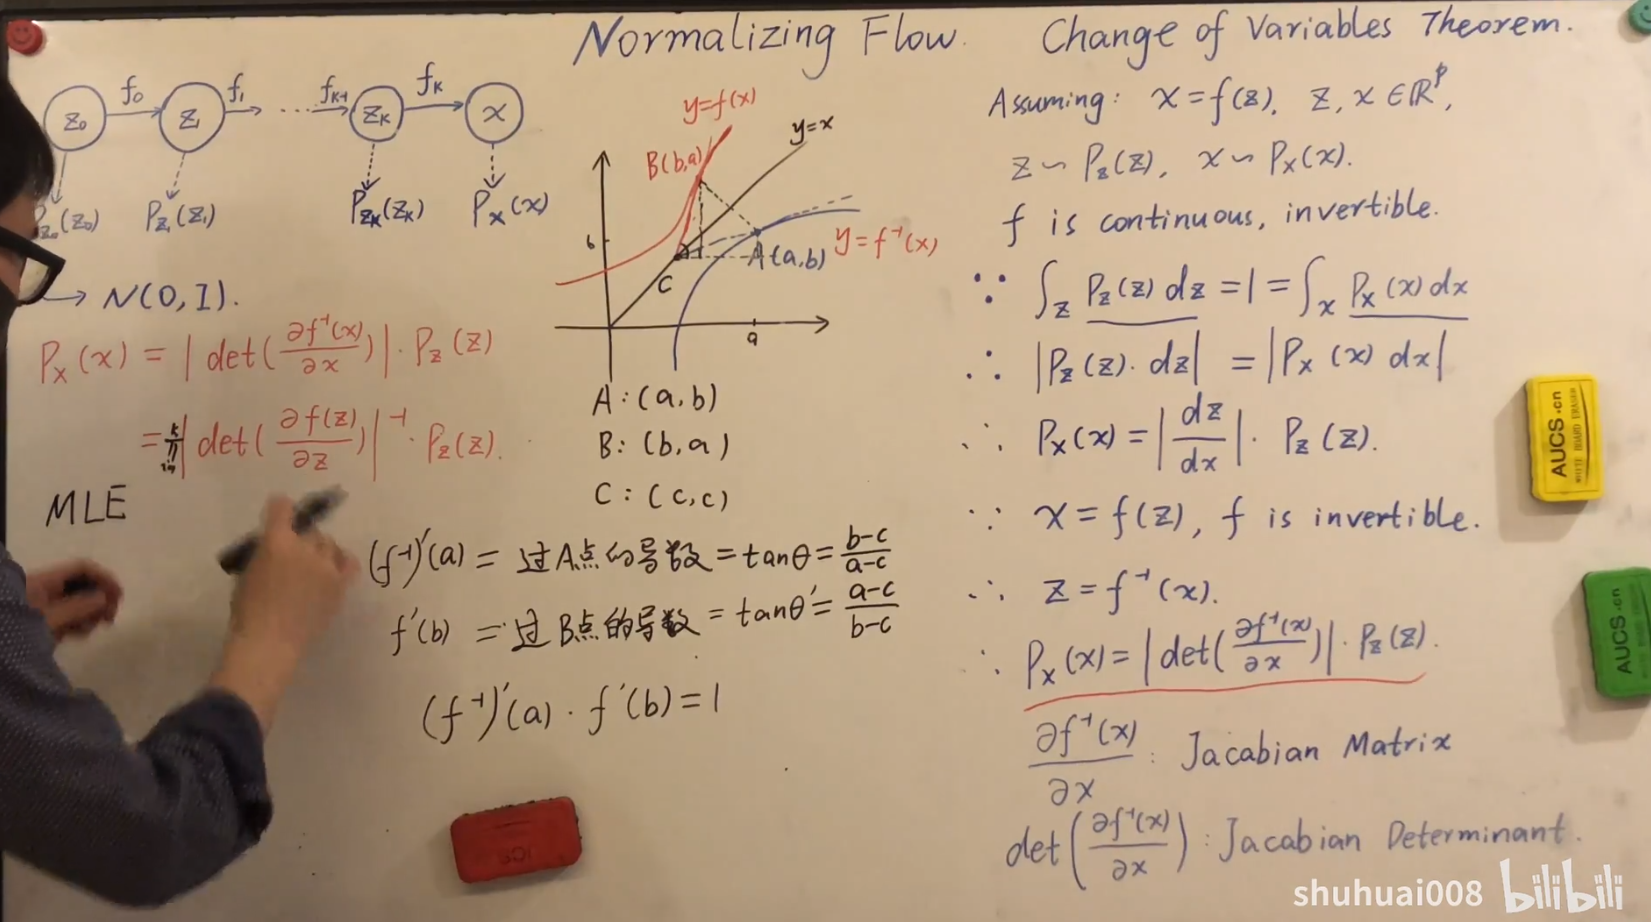 Normalizing Flow.
Change of Variables Theorem.
z₀ f₀ z₁ f₁ ...... fₖ₋₁ zₖ fₖ x
P_{z₀}(z₀) P_{z₁}(z₁) P_{zₖ}(zₖ) Pₓ(x)
→ N(0, I).
Pₓ(x) = | det( ∂f⁻¹(x) / ∂x ) | · P_z(z)
= ∏ | det( ∂f(z) / ∂z ) |⁻¹ · P_z(z).
MLE
y=f(x)
y=x
B(b,a)
b
A(a,b)
y=f⁻¹(x)
C
a
A : (a,b)
B : (b,a)
C : (c,c)
(f⁻¹)′(a) = 过A点的导数 = tanθ = b-c / a-c
f′(b) = 过B点的导数 = tanθ′ = a-c / b-c
(f⁻¹)′(a) · f′(b) = 1
Assuming: x = f(z). z, x ∈ ℝᵖ,
z ~ P_z(z), x ~ Pₓ(x).
f is continuous, invertible.
∵ ∫_z P_z(z) dz = 1 = ∫ₓ Pₓ(x) dx
∴ |P_z(z) · dz| = |Pₓ(x) dx|
∴ Pₓ(x) = | dz / dx | · P_z(z).
∵ x = f(z), f is invertible.
∴ z = f⁻¹(x).
∴ Pₓ(x) = | det( ∂f⁻¹(x) / ∂x ) | · P_z(z).
∂f⁻¹(x) / ∂x : Jacabian Matrix
det( ∂f⁻¹(x) / ∂x ) : Jacabian Determinant.
AUCS.cn
WHITE BOARD ERASER
AUCS.cn
shuhuai008 bilibili